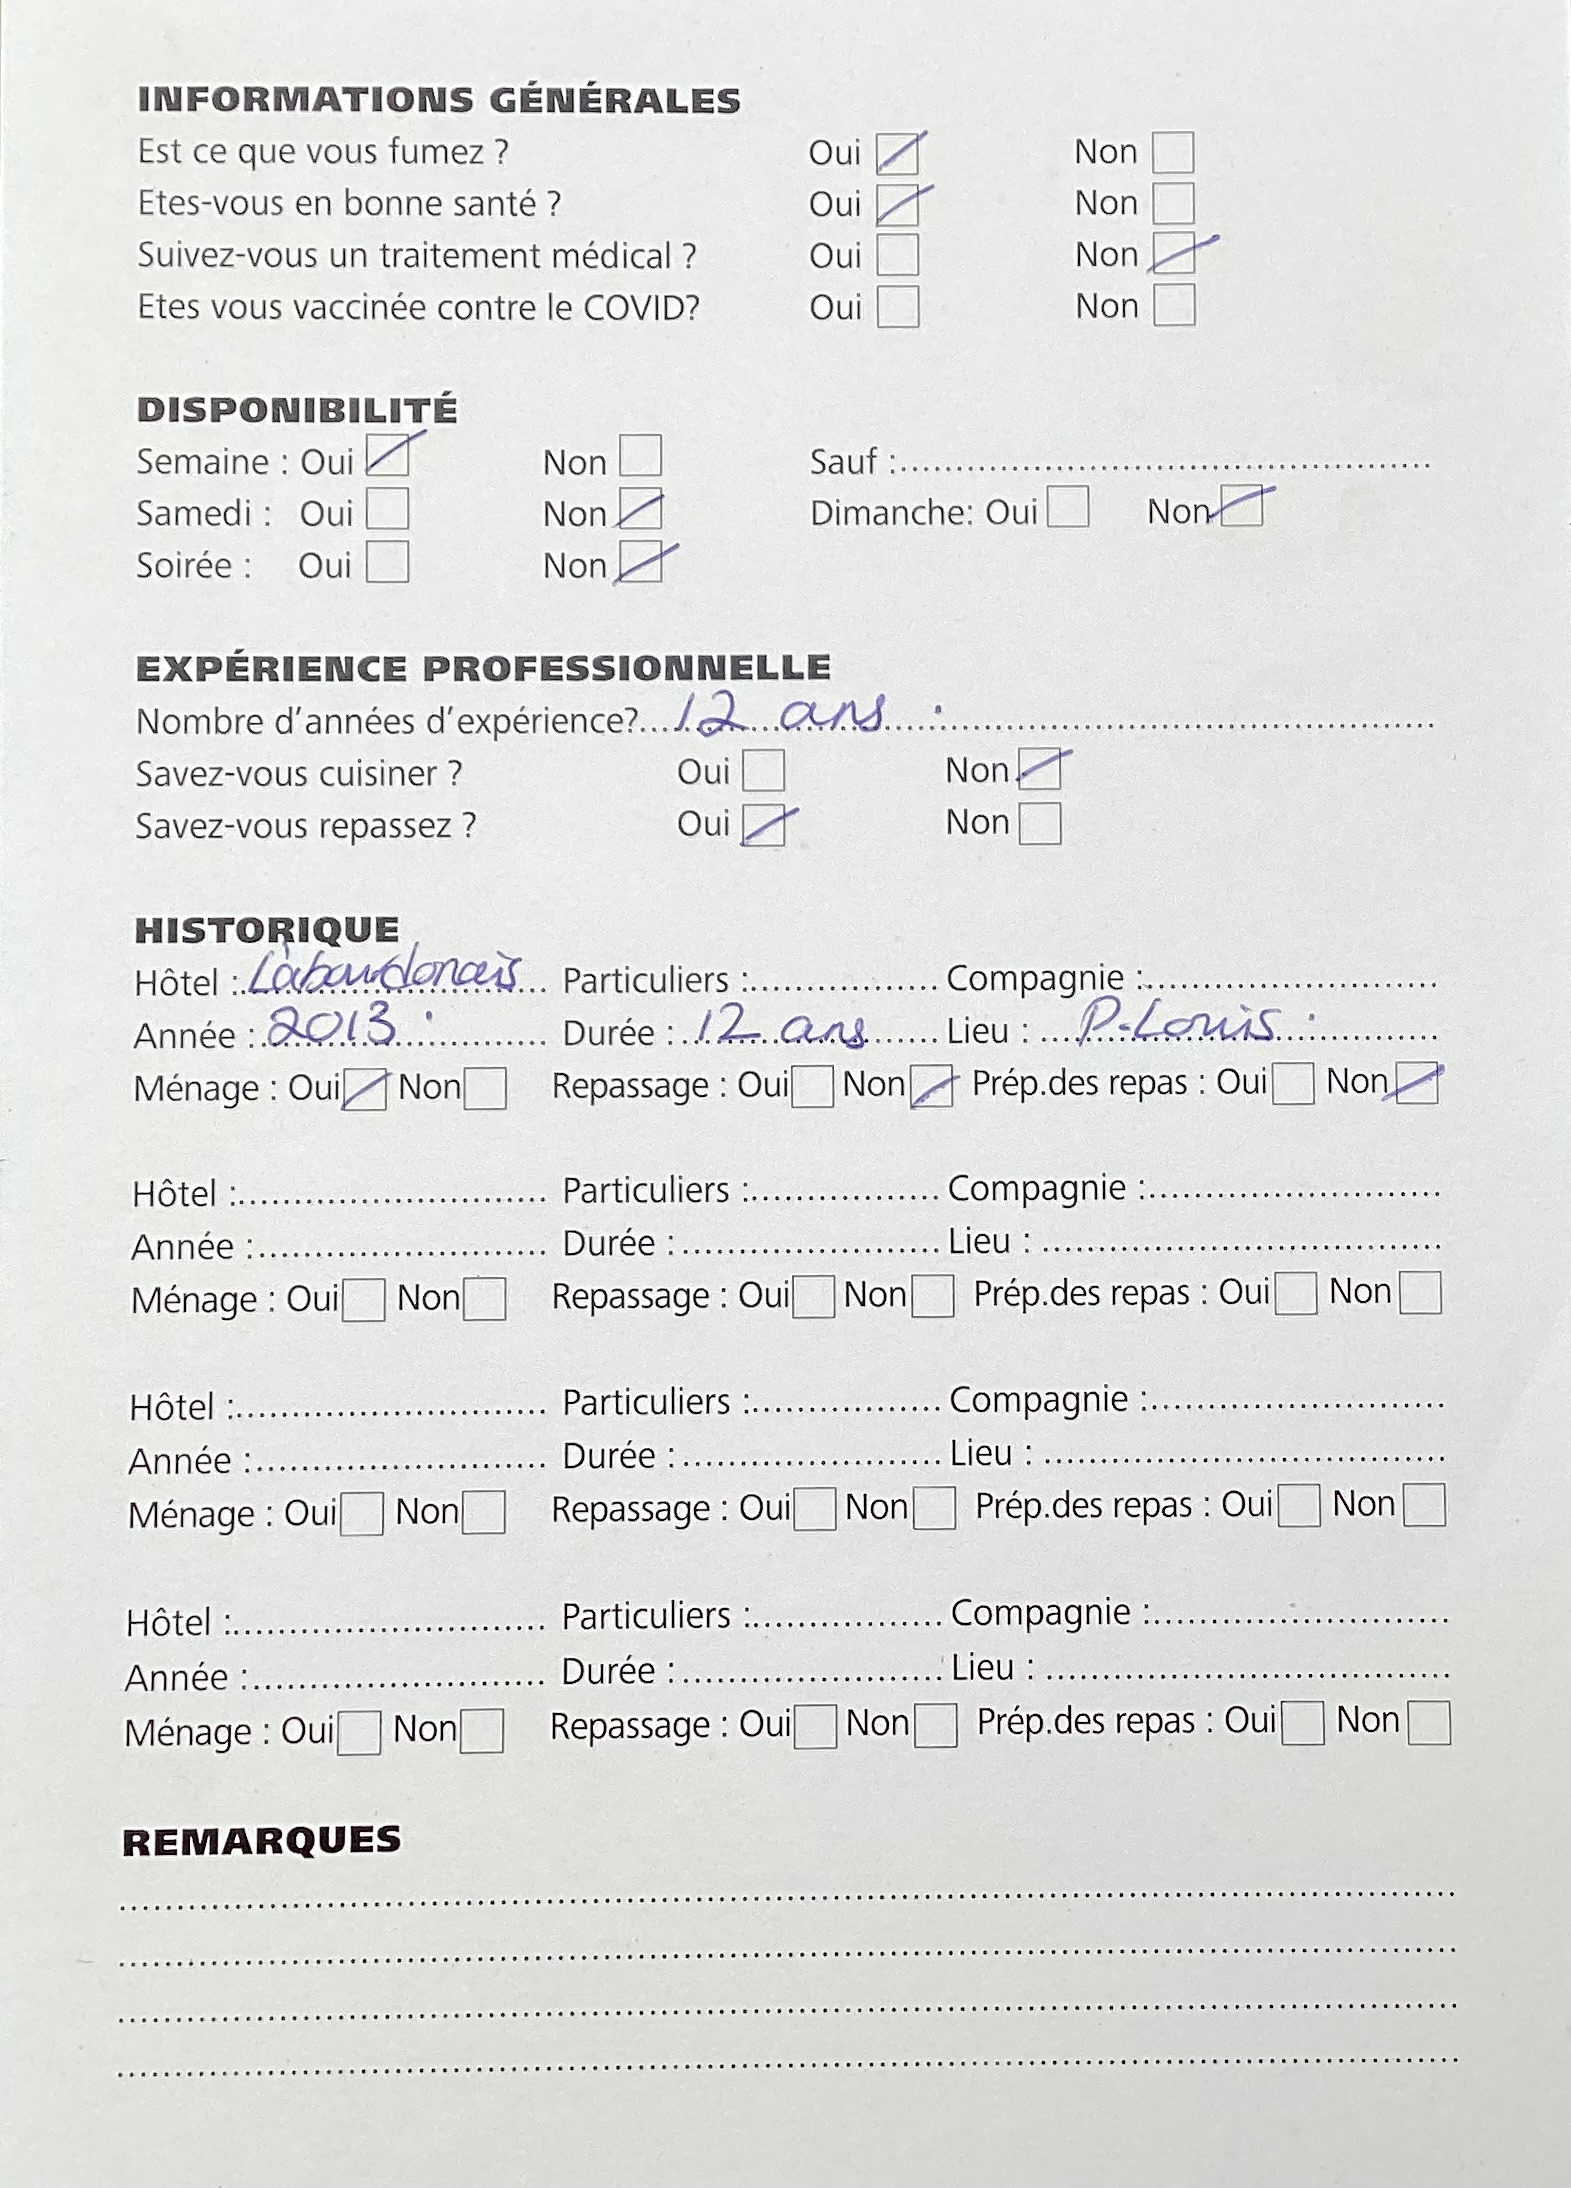 INFORMATIONS GÉNÉRALES
Est ce que vous fumez ? Oui Non
Etes-vous en bonne santé ? Oui Non
Suivez-vous un traitement médical ? Oui Non
Etes vous vaccinée contre le COVID? Oui Non
DISPONIBILITÉ
Semaine : Oui Non Sauf :
Samedi : Oui Non Dimanche: Oui Non
Soirée : Oui Non
EXPÉRIENCE PROFESSIONNELLE
Nombre d'années d'expérience? 12 ans .
Savez-vous cuisiner ? Oui Non
Savez-vous repassez ? Oui Non
HISTORIQUE
Hôtel : Labourdonais Particuliers : Compagnie :
Année : 2013 . Durée : 12 ans Lieu : P-Louis .
Ménage : Oui Non Repassage : Oui Non Prép.des repas : Oui Non
Hôtel : Particuliers : Compagnie :
Année : Durée : Lieu :
Ménage : Oui Non Repassage : Oui Non Prép.des repas : Oui Non
Hôtel : Particuliers : Compagnie :
Année : Durée : Lieu :
Ménage : Oui Non Repassage : Oui Non Prép.des repas : Oui Non
Hôtel : Particuliers : Compagnie :
Année : Durée : Lieu :
Ménage : Oui Non Repassage : Oui Non Prép.des repas : Oui Non
REMARQUES